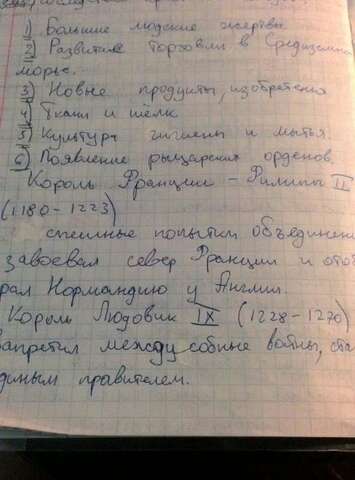 1) Большие людские жертвы.
2) Развитие торговли в Средиземно
морье.
3) Новые продукты, изобретения
4) Ткани и шёлк
5) Культура гигиены и мытья.
6) Появление рыцарских орденов.
Король Франции - Филипп II
(1180 - 1223)
успешные попытки объединени
завоевал север Франции и отоб
рал Нормандию у Англии.
Король Людовик IX (1228 - 1270)
запретил междусобные войны, ста
диным правителем.